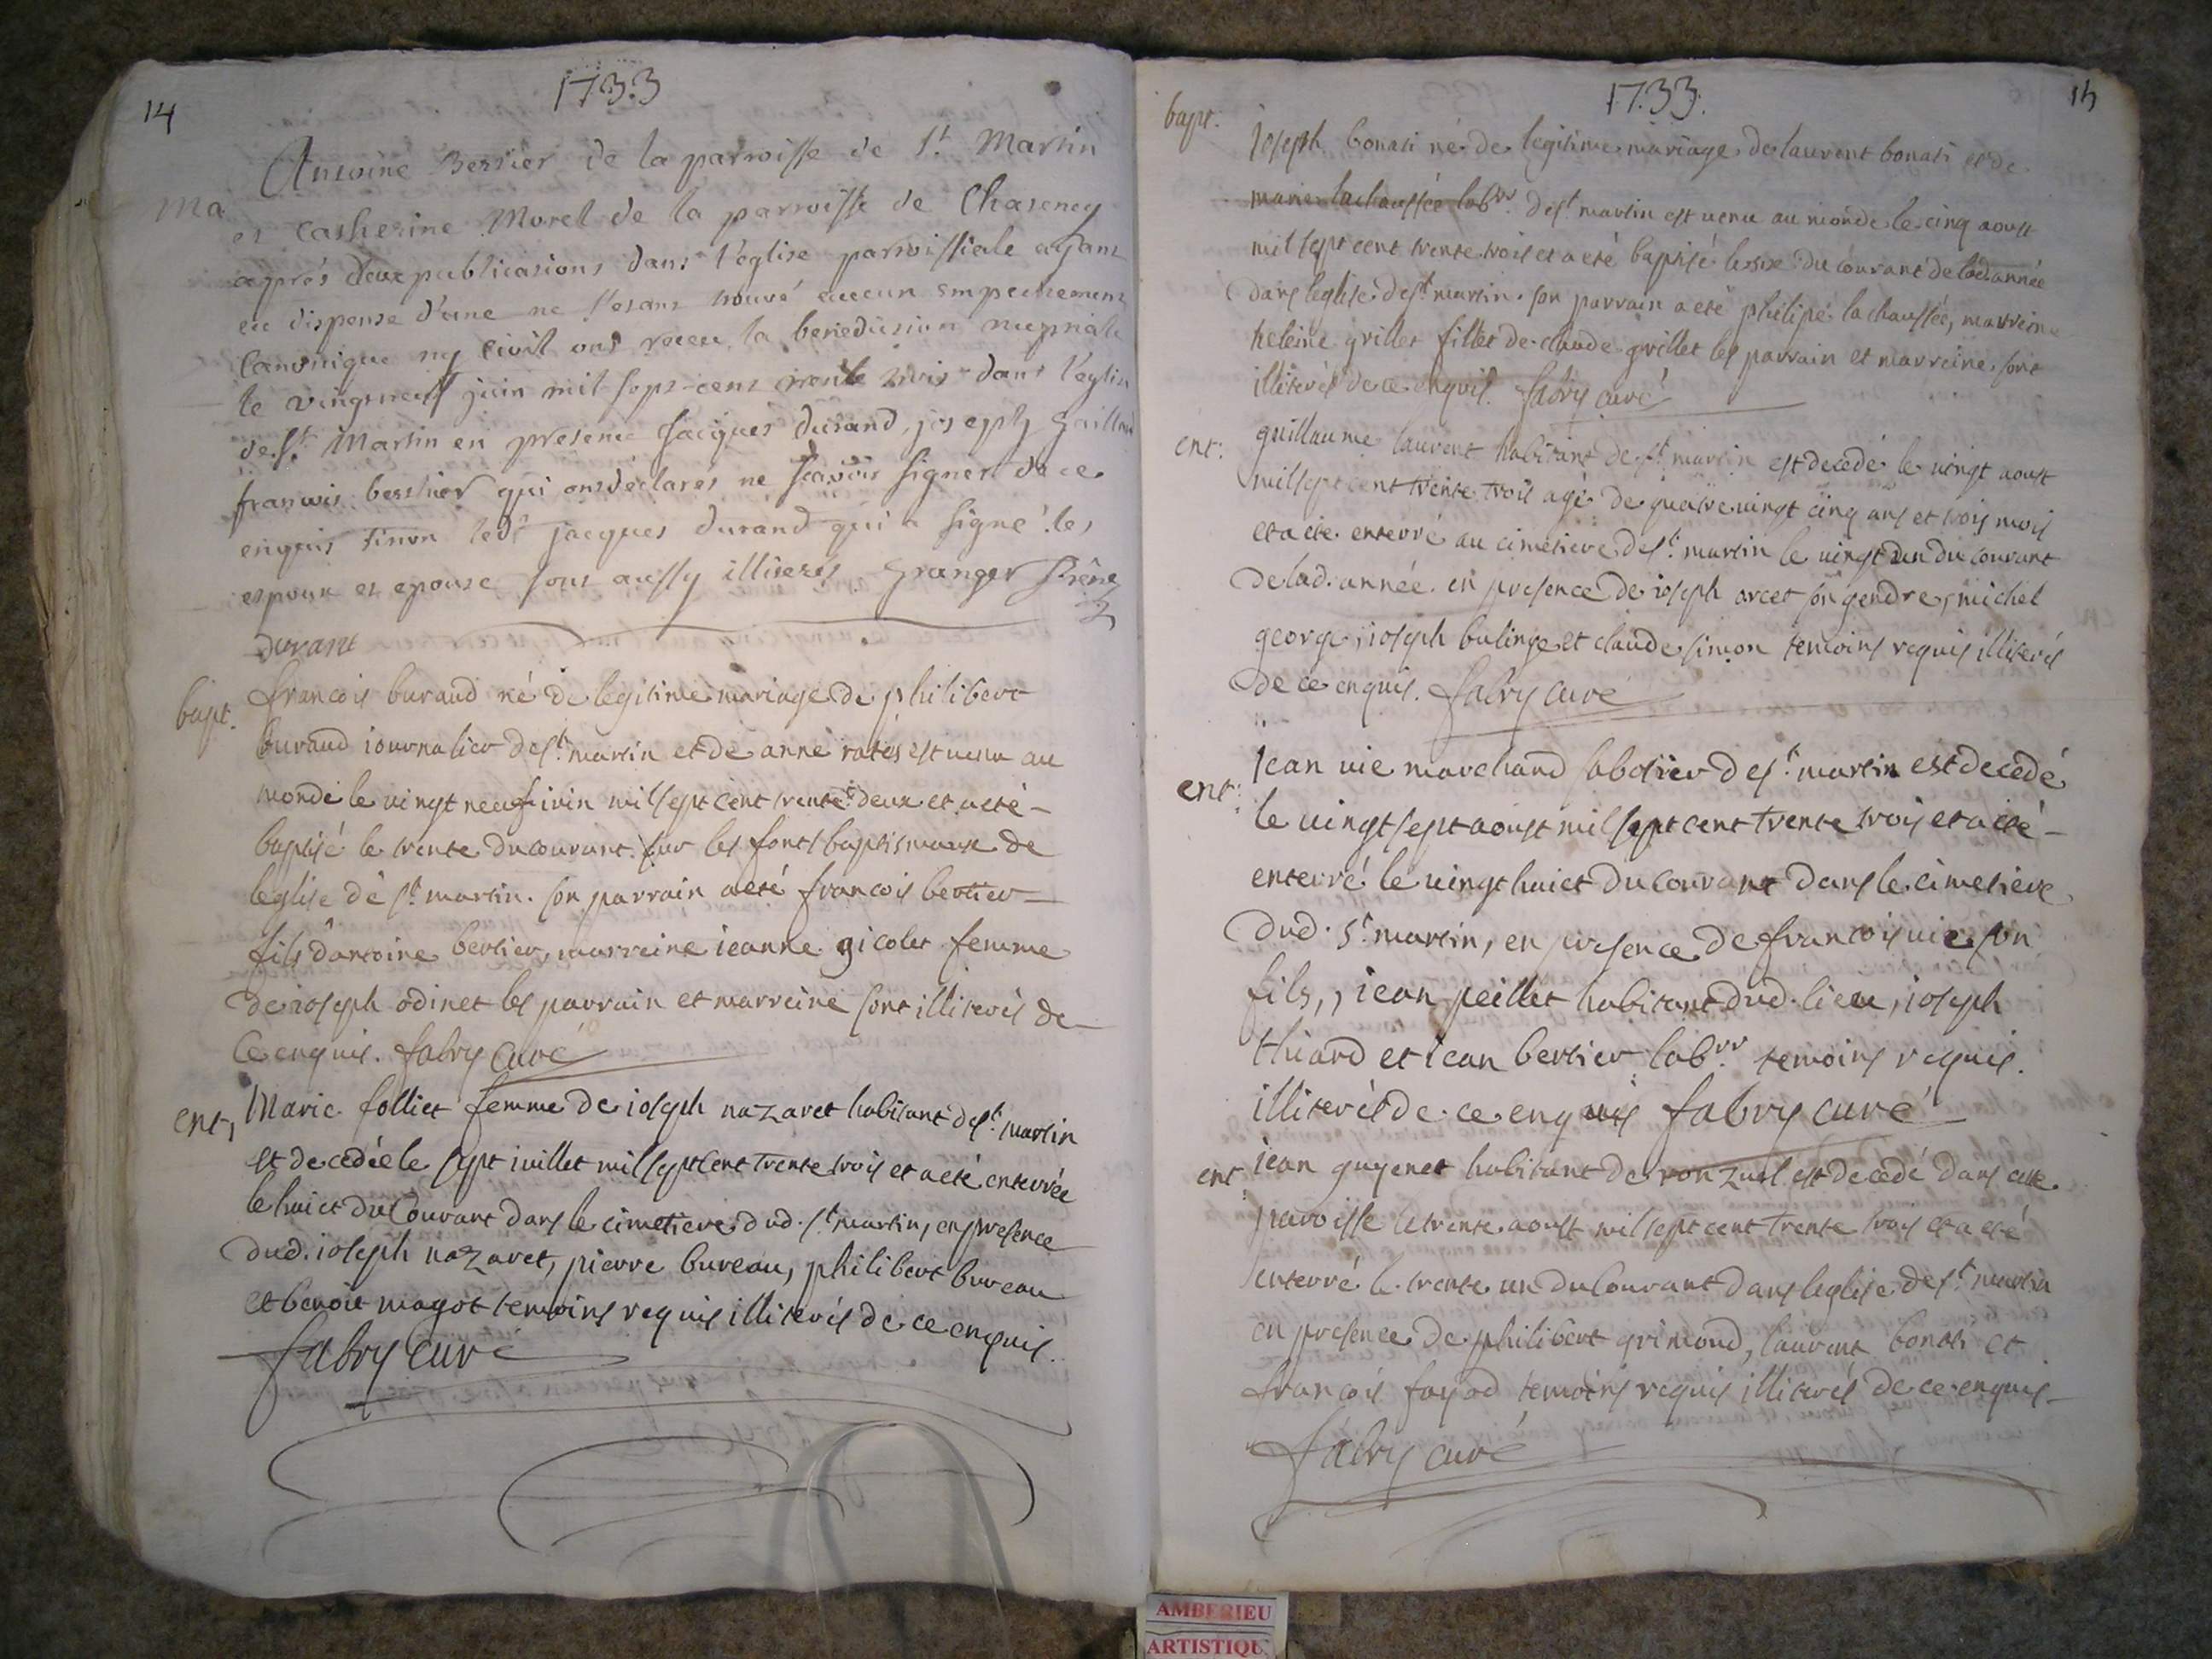 14
1733
Antoine Berrier de la parroisse de St Martin
Ma
et Catherine Morel de la parroisse de Chaseney
apprés deux publications dans l'église parroissiale ayant
eu dispense d'une ne s'etant trouvé aucun empechement
Canonique ny Civil ont receu la benediction nuptiale
le vingtneuf juin mil sept-cent trente trois dans l'eglise
de St Martin en presence Jacques Durand, joseph Gaillard
francois bertier qui ont déclarés ne scavoir signer de ce
enquis sinon ledt jacques durand qui a signé les
espoux et epouse sont aussy illiterés Granger Prêtre
durant
bapt.
francois buraud né de legitime mariage de philibert
buraud iournalier de st martin et de anne est venu au
monde le vingt neuf iuin mil sept cent trente deux et a eté
baptisé le trente du courant sur les fonts baptismaux de
leglise de st martin. son parrain a eté francois bertier
fils dantoine bertier, marreine ieanne gicolet femme
de ioseph odinet les parrain et marreine sont illiterés de
ce enquis. fabry curé
ent,
Marie folliet femme de ioseph nazaret habitant de st martin
et decedée le sept iuillet mil sept cent trente trois et a eté enterrée
le huict du Courant dans le cimetiere dud. st martin, en presence
dud. ioseph nazaret, pierre bureau, philibert bureau
et benoit magot temoins requis illiterés de ce enquis.
fabry curé
15
1733.
bapt.
Joseph bonati né de legitime mariage de laurent bonati et de
marie lachaussée labrr. de st martin est venu au monde le cinq aoust
mil sept cent trente trois et a eté baptisé le six du courant de lad. année
dans leglise de st martin. son parrain a eté philipe lachaussée, marreine
heleine grillet fillet de claude grillet les parrain et marreine sont
illiterés de ce enquis. fabry curé
ent:
guillaume laurent habitant de st martin est decedé le vingt aoust
mil sept cent trente trois agé de quatre vingt cinq ans et trois mois
et a eté enterré au cimetiere de st martin le vingt un du courant
de lad. année. en presence de ioseph arcet son gendre, michel
george, ioseph bulinge et claude simon temoins requis illiterés
de ce enquis. fabry curé
ent:
Jean vie marchand sabotier de st martin est decedé
le vingt sept aoust mil sept cent trente trois et a eté
enterré le vingt huict du courant dans le cimetiere
dud. st martin, en presence de francois vie son
fils,, iean peillet habitant dud. lieu, ioseph
thiard et iean bertier labrr temoins requis.
illiterés de ce enquis fabry curé
ent
iean guyenet habitant de ronzuel est decedé dans cette
parroisse le trente aoust mil sept cent trente trois et a eté
enterré le trente un du Courant dans leglise de st martin
en presence de philibert grimond, laurent bonati et
francois fayod temoins requis illiterés de ce enquis
fabry curé
AMBERIEU
ARTISTIQU